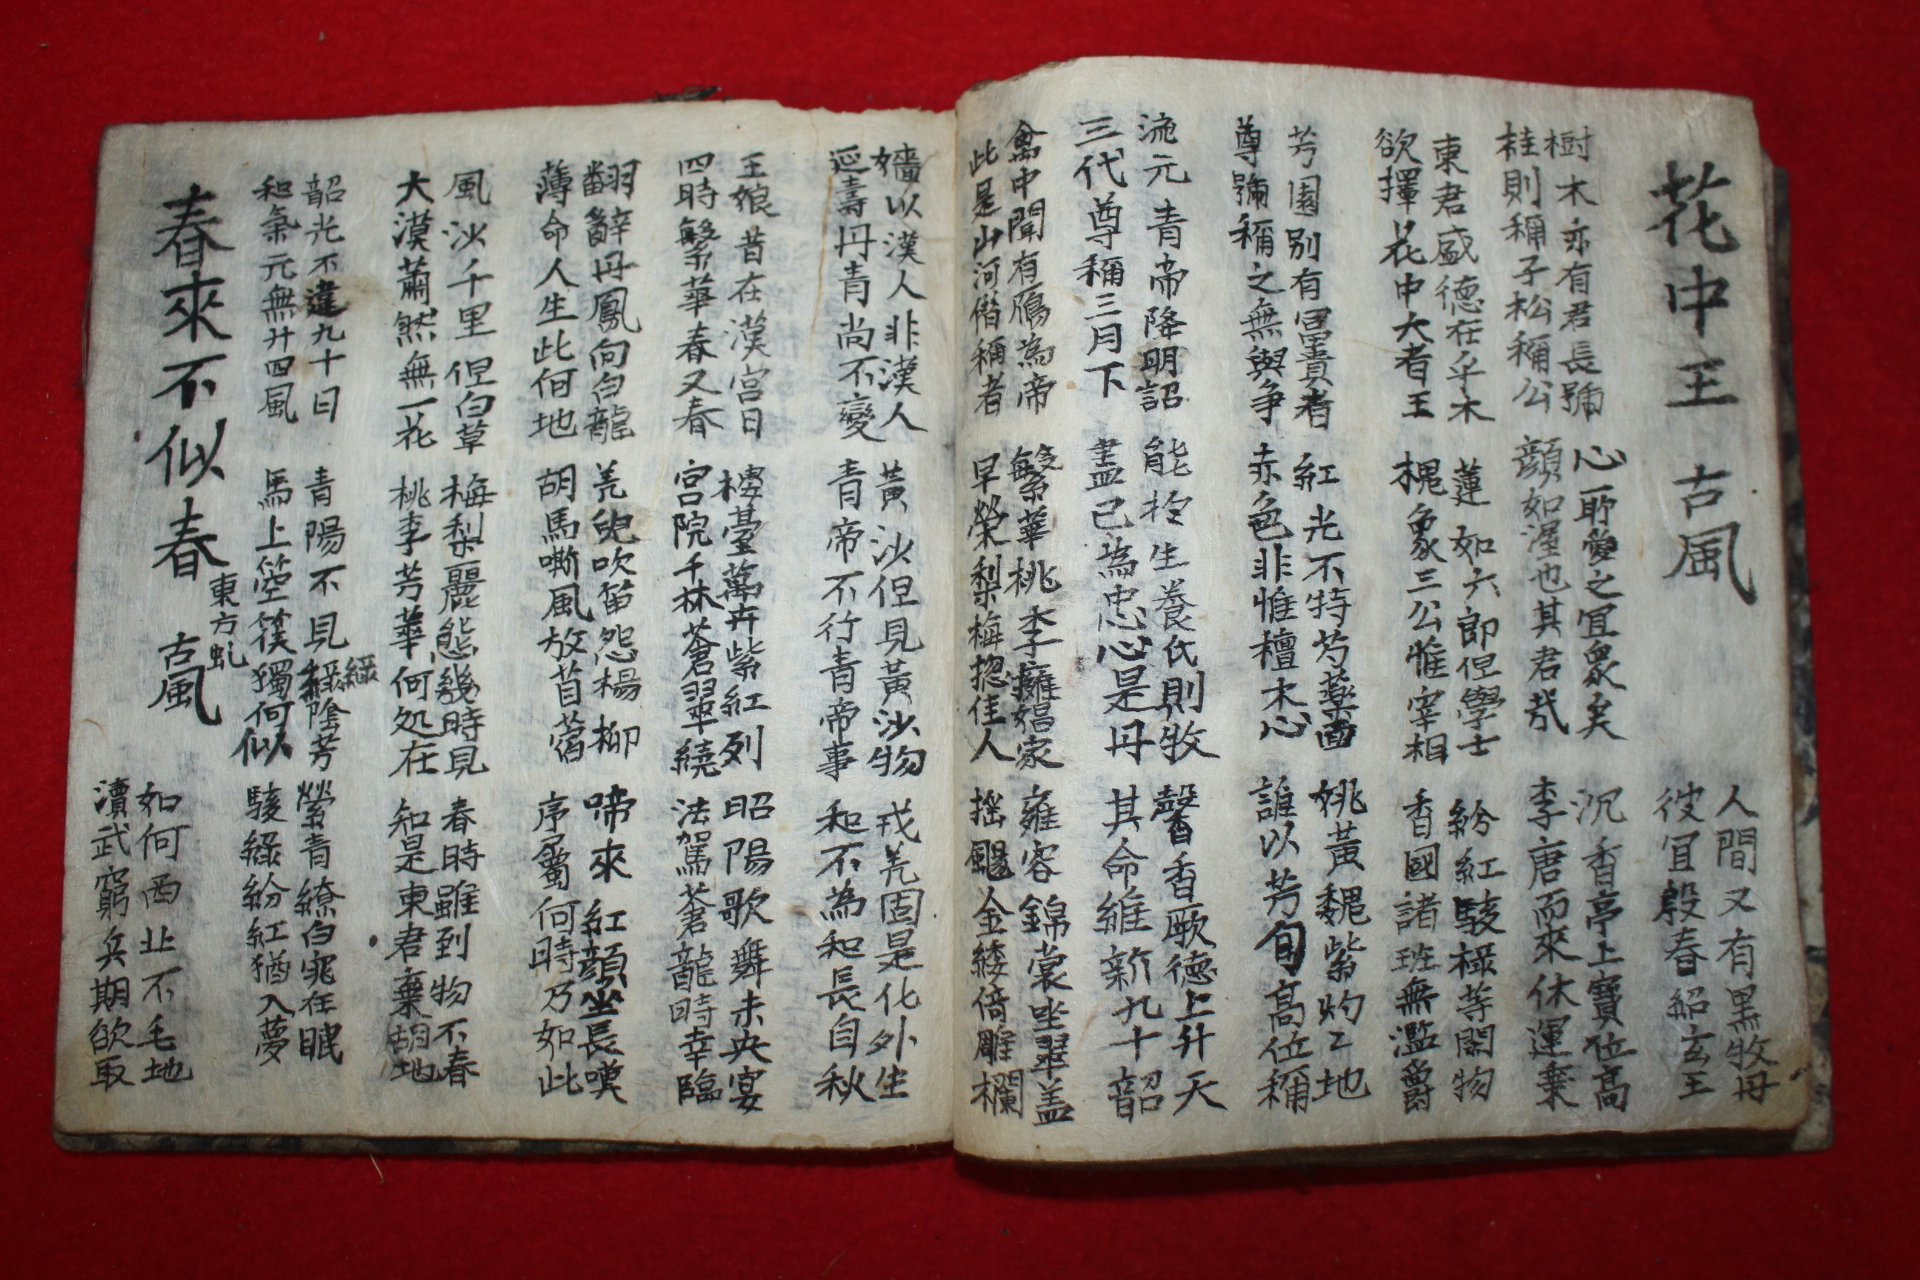 花中王 古風
人間又有黑牧丹
彼宜殷春紹玄王
樹木亦有君長號
桂則稱子松稱公
心耶愛之宜衆矣
顏如渥也其君哉
沉香亭上寶位高
李唐而來休運棄
東君盛德在乎木
欲擇花中大者王
蓮如六郎但學士
槐象三公惟宰相
紛紅駿綠等閑物
香國諸班無濫爵
芳園別有富貴者
尊號稱之無與争
紅光不特芍藥西
赤色非惟檀木心
姚黃魏紫灼々地
誰以芳旬高位稱
流元青帝降明詔
三代尊稱三月下
能於生養氏則牧
盡己為忠心是丹
馨香厥德上升天
其命維新九十韶
禽中聞有鴈為帝
此是山河僭稱者
繁華桃李娼家
早榮梨梅摠佳人
雍容錦裳坐翠盖
搖颺金縷倚雕欄
嬙以漢人非漢人
延壽丹青尚不變
黃沙但見黃沙物
青帝不行青帝事
戎羌固是化外生
和不為和長自秋
王娘昔在漢宮日
四時繁華春又春
樓臺萬卉紫紅列
宮院千林蒼翠繞
昭陽歌舞未央宴
法駕蒼龍時幸臨
翻辭丹鳳向白龍
薄命人生此何地
羌兒吹笛怨楊柳
胡馬嘶風放苜蓿
啼來紅顏坐長嘆
序屬何時乃如此
風沙千里但白草
大漠蕭然無一花
梅梨麗態幾時見
桃李芳華何処在
春時雖到物不春
知是東君棄胡地
韶光不違九十日
和氣元無廿四風
青陽不見綠陰芳
馬上箜篌獨何似
縈青繚白在眠
駿綠紛紅猶入夢
春來不似春 東方虬 古風
如何西北不毛地
瀆武窮兵期欲取